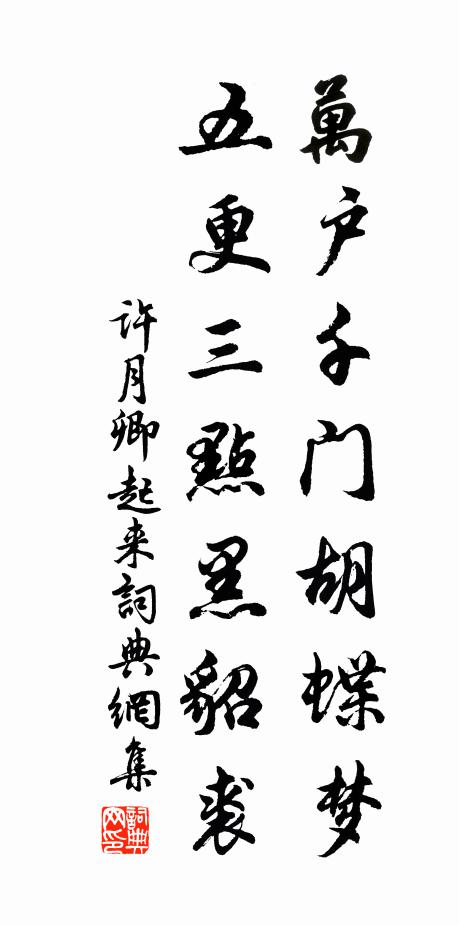 萬户千门胡蝶梦
五更三點黑貂裘
许月卿起来詞典網集
詞典网印